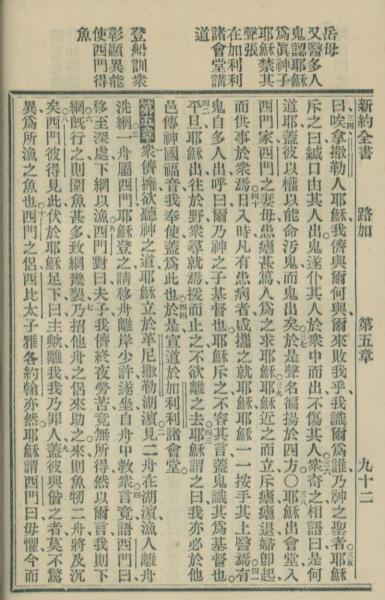 岳母
又醫多人
鬼認耶穌
爲眞神子
耶穌禁其
聲張
在加利利
諸會堂講
道
登船訓衆
彰顯異能
使西門得
魚
新約全書 路加 第五章 九十二
曰唉拿撒勒人耶穌我儕與爾何與爾來敗我乎我識爾爲誰乃神之聖者耶穌
斥之曰緘口由其人出鬼遂仆其人於衆中而出不傷其人衆奇之相語曰是何
道耶蓋彼以權以能命汚鬼而鬼出矣於是聲名徧揚於四方〇耶穌出會堂入
西門家西門之妻母患瘧甚篤人爲之求耶穌耶穌近之而立斥瘧瘧退婦卽起
而供事於衆焉日入時凡有患病者咸攜之就耶穌耶穌一一按手其上醫焉有
鬼自多人出呼曰爾乃神之子基督也耶穌斥之不容其言蓋鬼識其爲基督也
平旦耶穌出往於野衆尋就焉援而止之不欲離之去耶穌謂之曰我亦必於他
邑傳神國福音我奉使蓋爲此也於是宣道於加利利諸會堂
第五章衆儕擁欲聽神之道耶穌立於革尼撒勒湖濱見二舟在湖濱漁人離舟
洗網一舟屬西門耶穌登之請移舟離岸少許遂坐自舟中敎衆言竟語西門曰
移至深處下網以漁西門對曰夫子我儕終夜勞苦竟無所得然以爾言我則下
網旣行之則圍魚甚多致網幾裂乃招他舟之侶來助之來則魚牣二舟將及沉
矣西門彼得見此伏於耶穌足下曰主歟離我我乃罪人蓋彼與偕之者莫不驚
異爲所漁之魚也西門之侶西比太子雅各約翰亦然耶穌謂西門曰毋懼今而